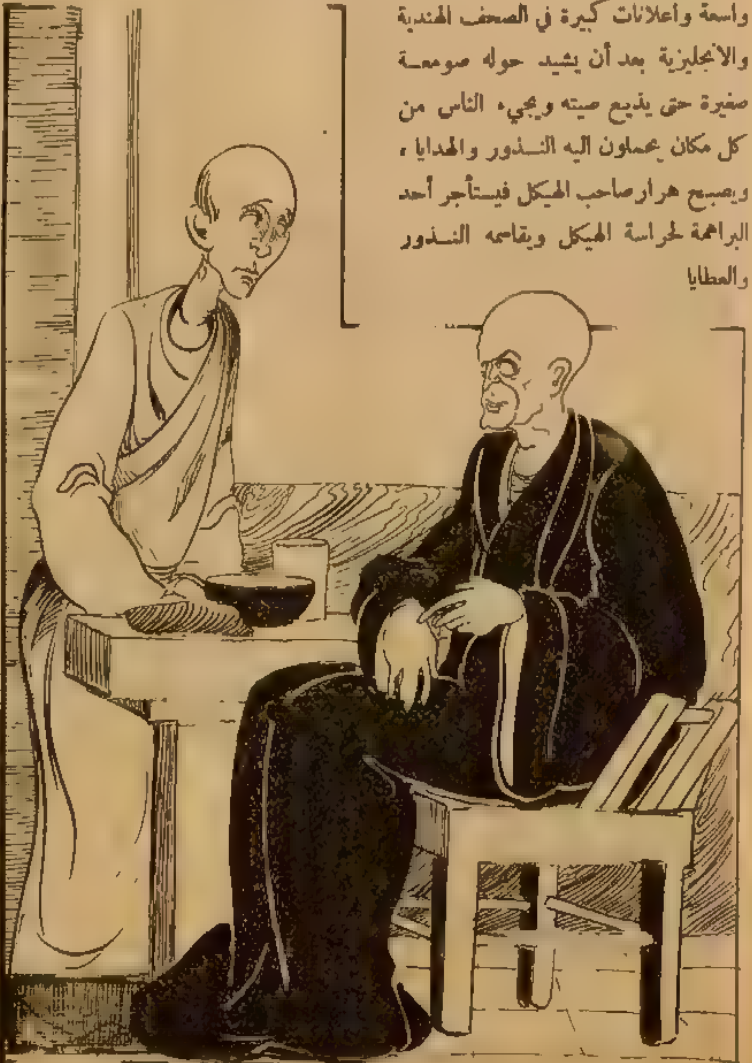 واسعة واعلانات كبيرة في الصحف الهندية
والانجليزية بعد أن يشيد حوله صومعة
صغيرة حتى يذيع صيته ويجيء الناس من
كل مكان يحملون اليه النذور والهدايا ،
ويصبح هرار صاحب الهيكل فيستأجر أحد
البراهمة لحراسة الهيكل ويقاسمه النذور
والعطايا